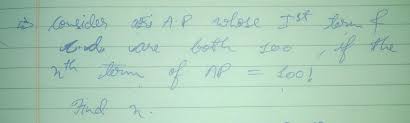 Consider an A.P whose Ist term &
c.d. are both 100, if the
nth term of AP = 100!
Find n.